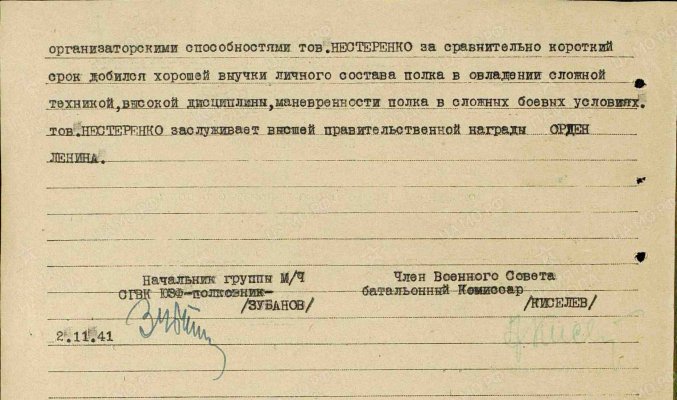 организаторскими способностями тов.НЕСТЕРЕНКО за сравнительно короткий
срок добился хорошей выучки личного состава полка в овладении сложной
техникой,высокой дисциплины,маневренности полка в сложных боевых условиях.
тов.НЕСТЕРЕНКО заслуживает высшей правительственной награды ОРДЕН
ЛЕНИНА.
Начальник группы М/Ч
СГВК ЮЗФ-полковник-
/ЗУБАНОВ/
Член Военного Совета
батальонный Комиссар
/КИСЕЛЕВ/
2.11.41